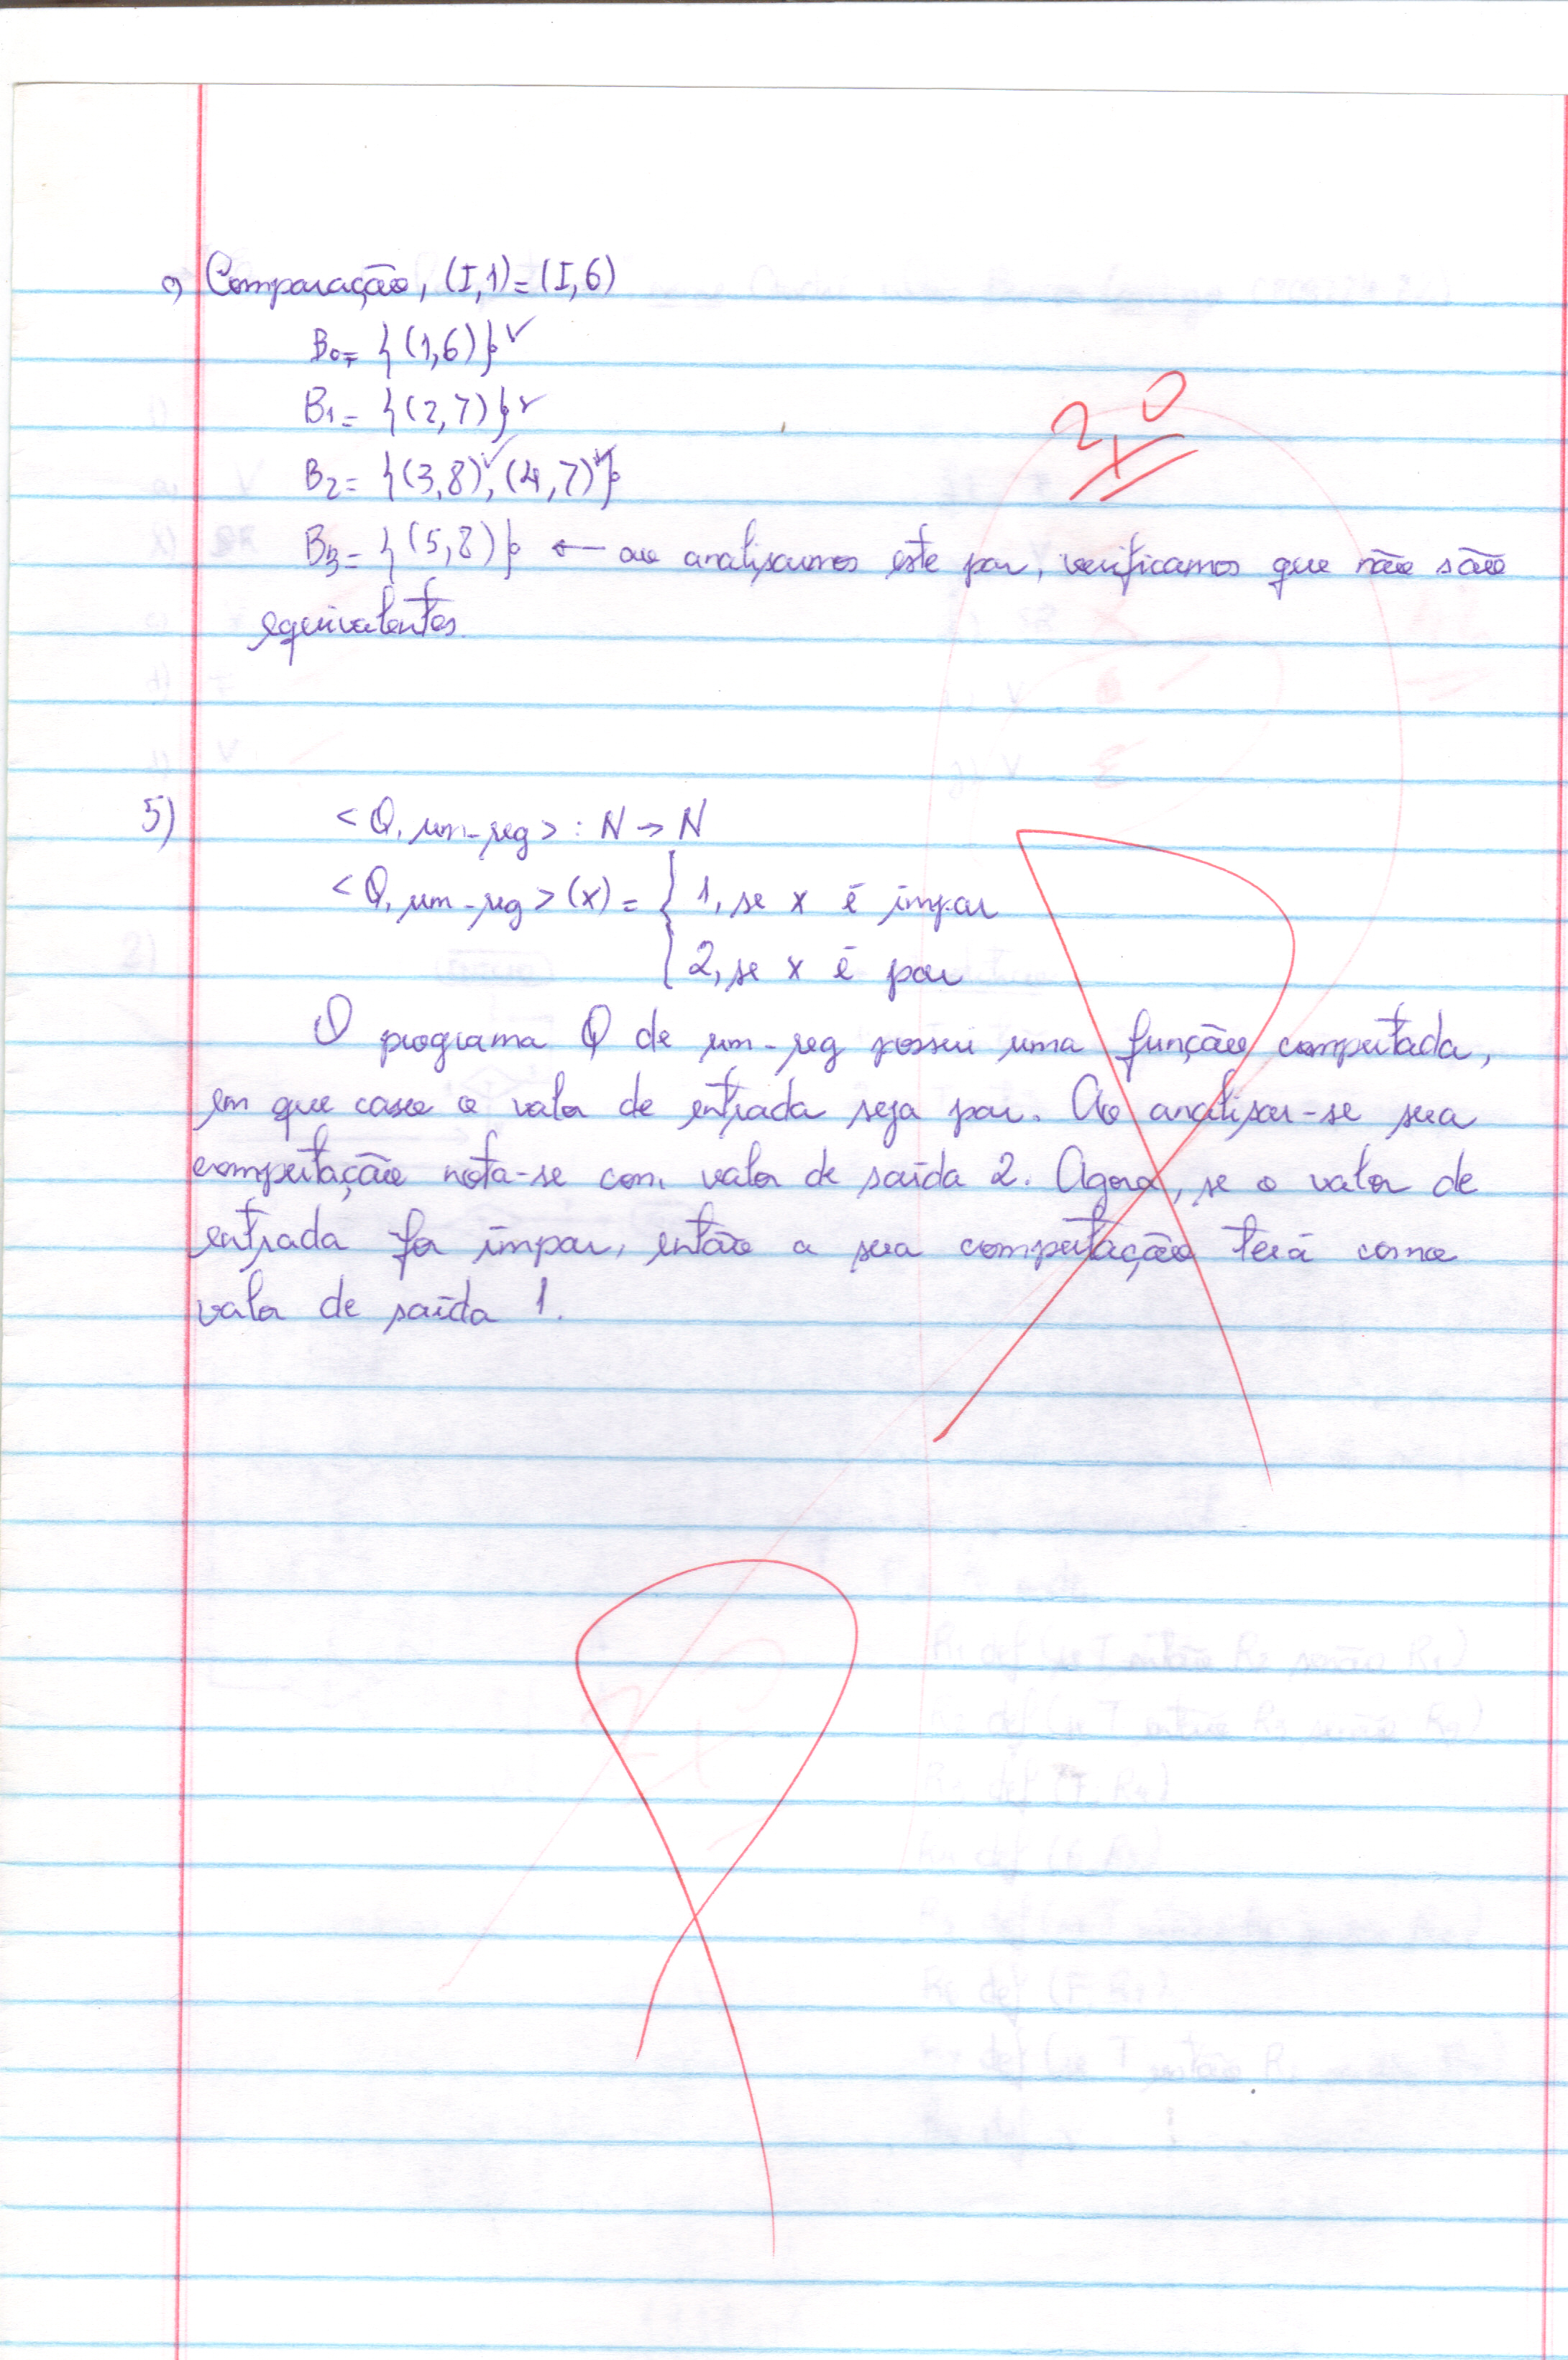 → Comparação, (I,1) = (I,6)
B0 = {(1,6)} ✓
B1 = {(2,7)} ✓
2,0
B2 = {(3,8)✓, (4,7)✓}
B3 = {(5,8)} ← ao analisarmos este par, verificamos que não são
equivalentes.
5) <Q, um-reg> : N → N
<Q, um-reg>(x) = { 1, se x é ímpar
{ 2, se x é par
O programa Q de um-reg possui uma função computada,
em que caso o valor de entrada seja par. Ao analisar-se sua
computação nota-se com valor de saída 2. Agora, se o valor de
entrada for ímpar, então a sua computação terá como
valor de saída 1.